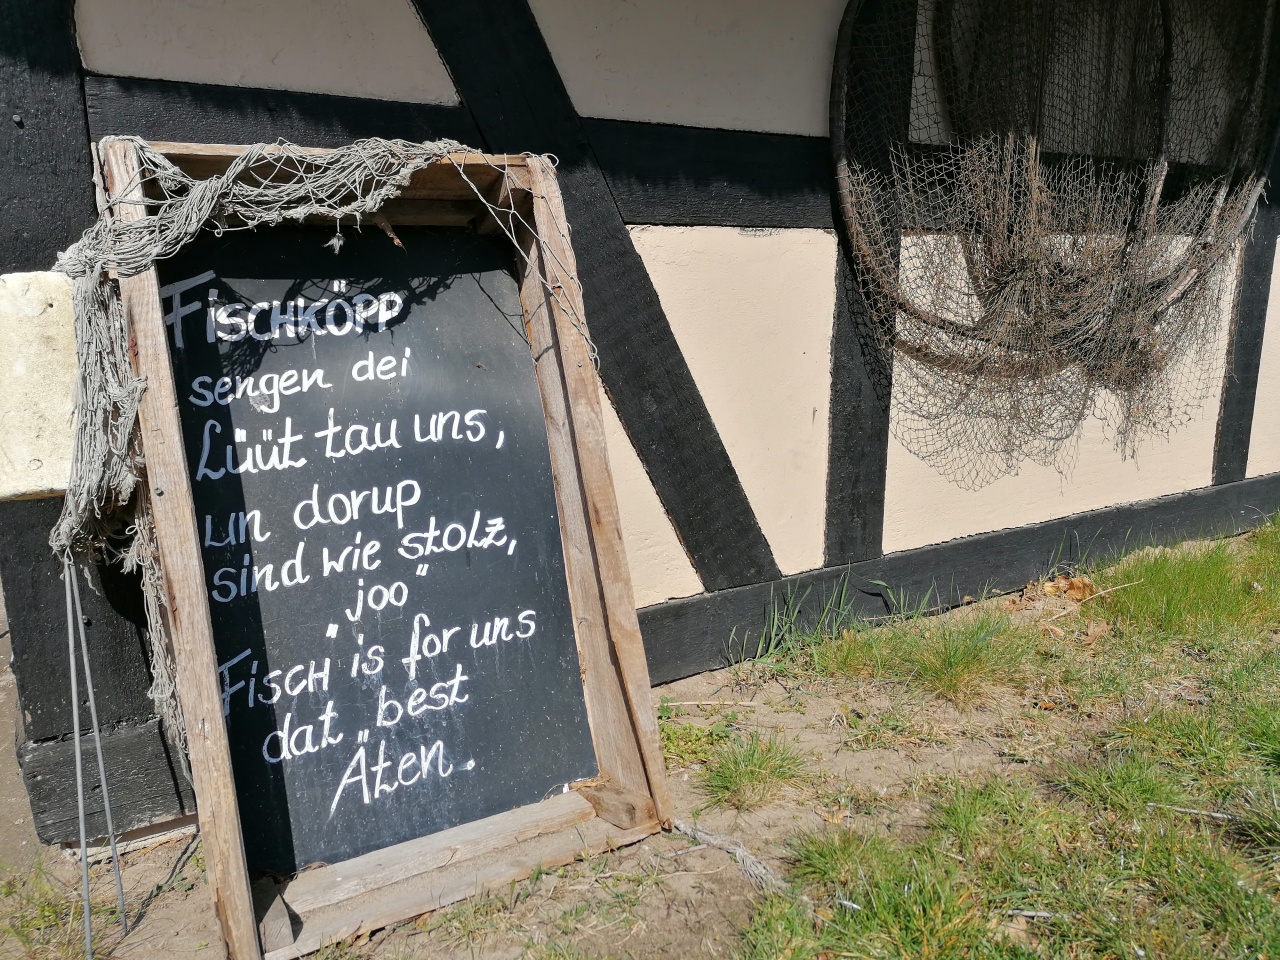 FiSCHKÖPP
sengen dei
Lüüt tau uns,
un dorup
sind wie stolz,
"joo"
FiSCH is for uns
dat best
Äten.